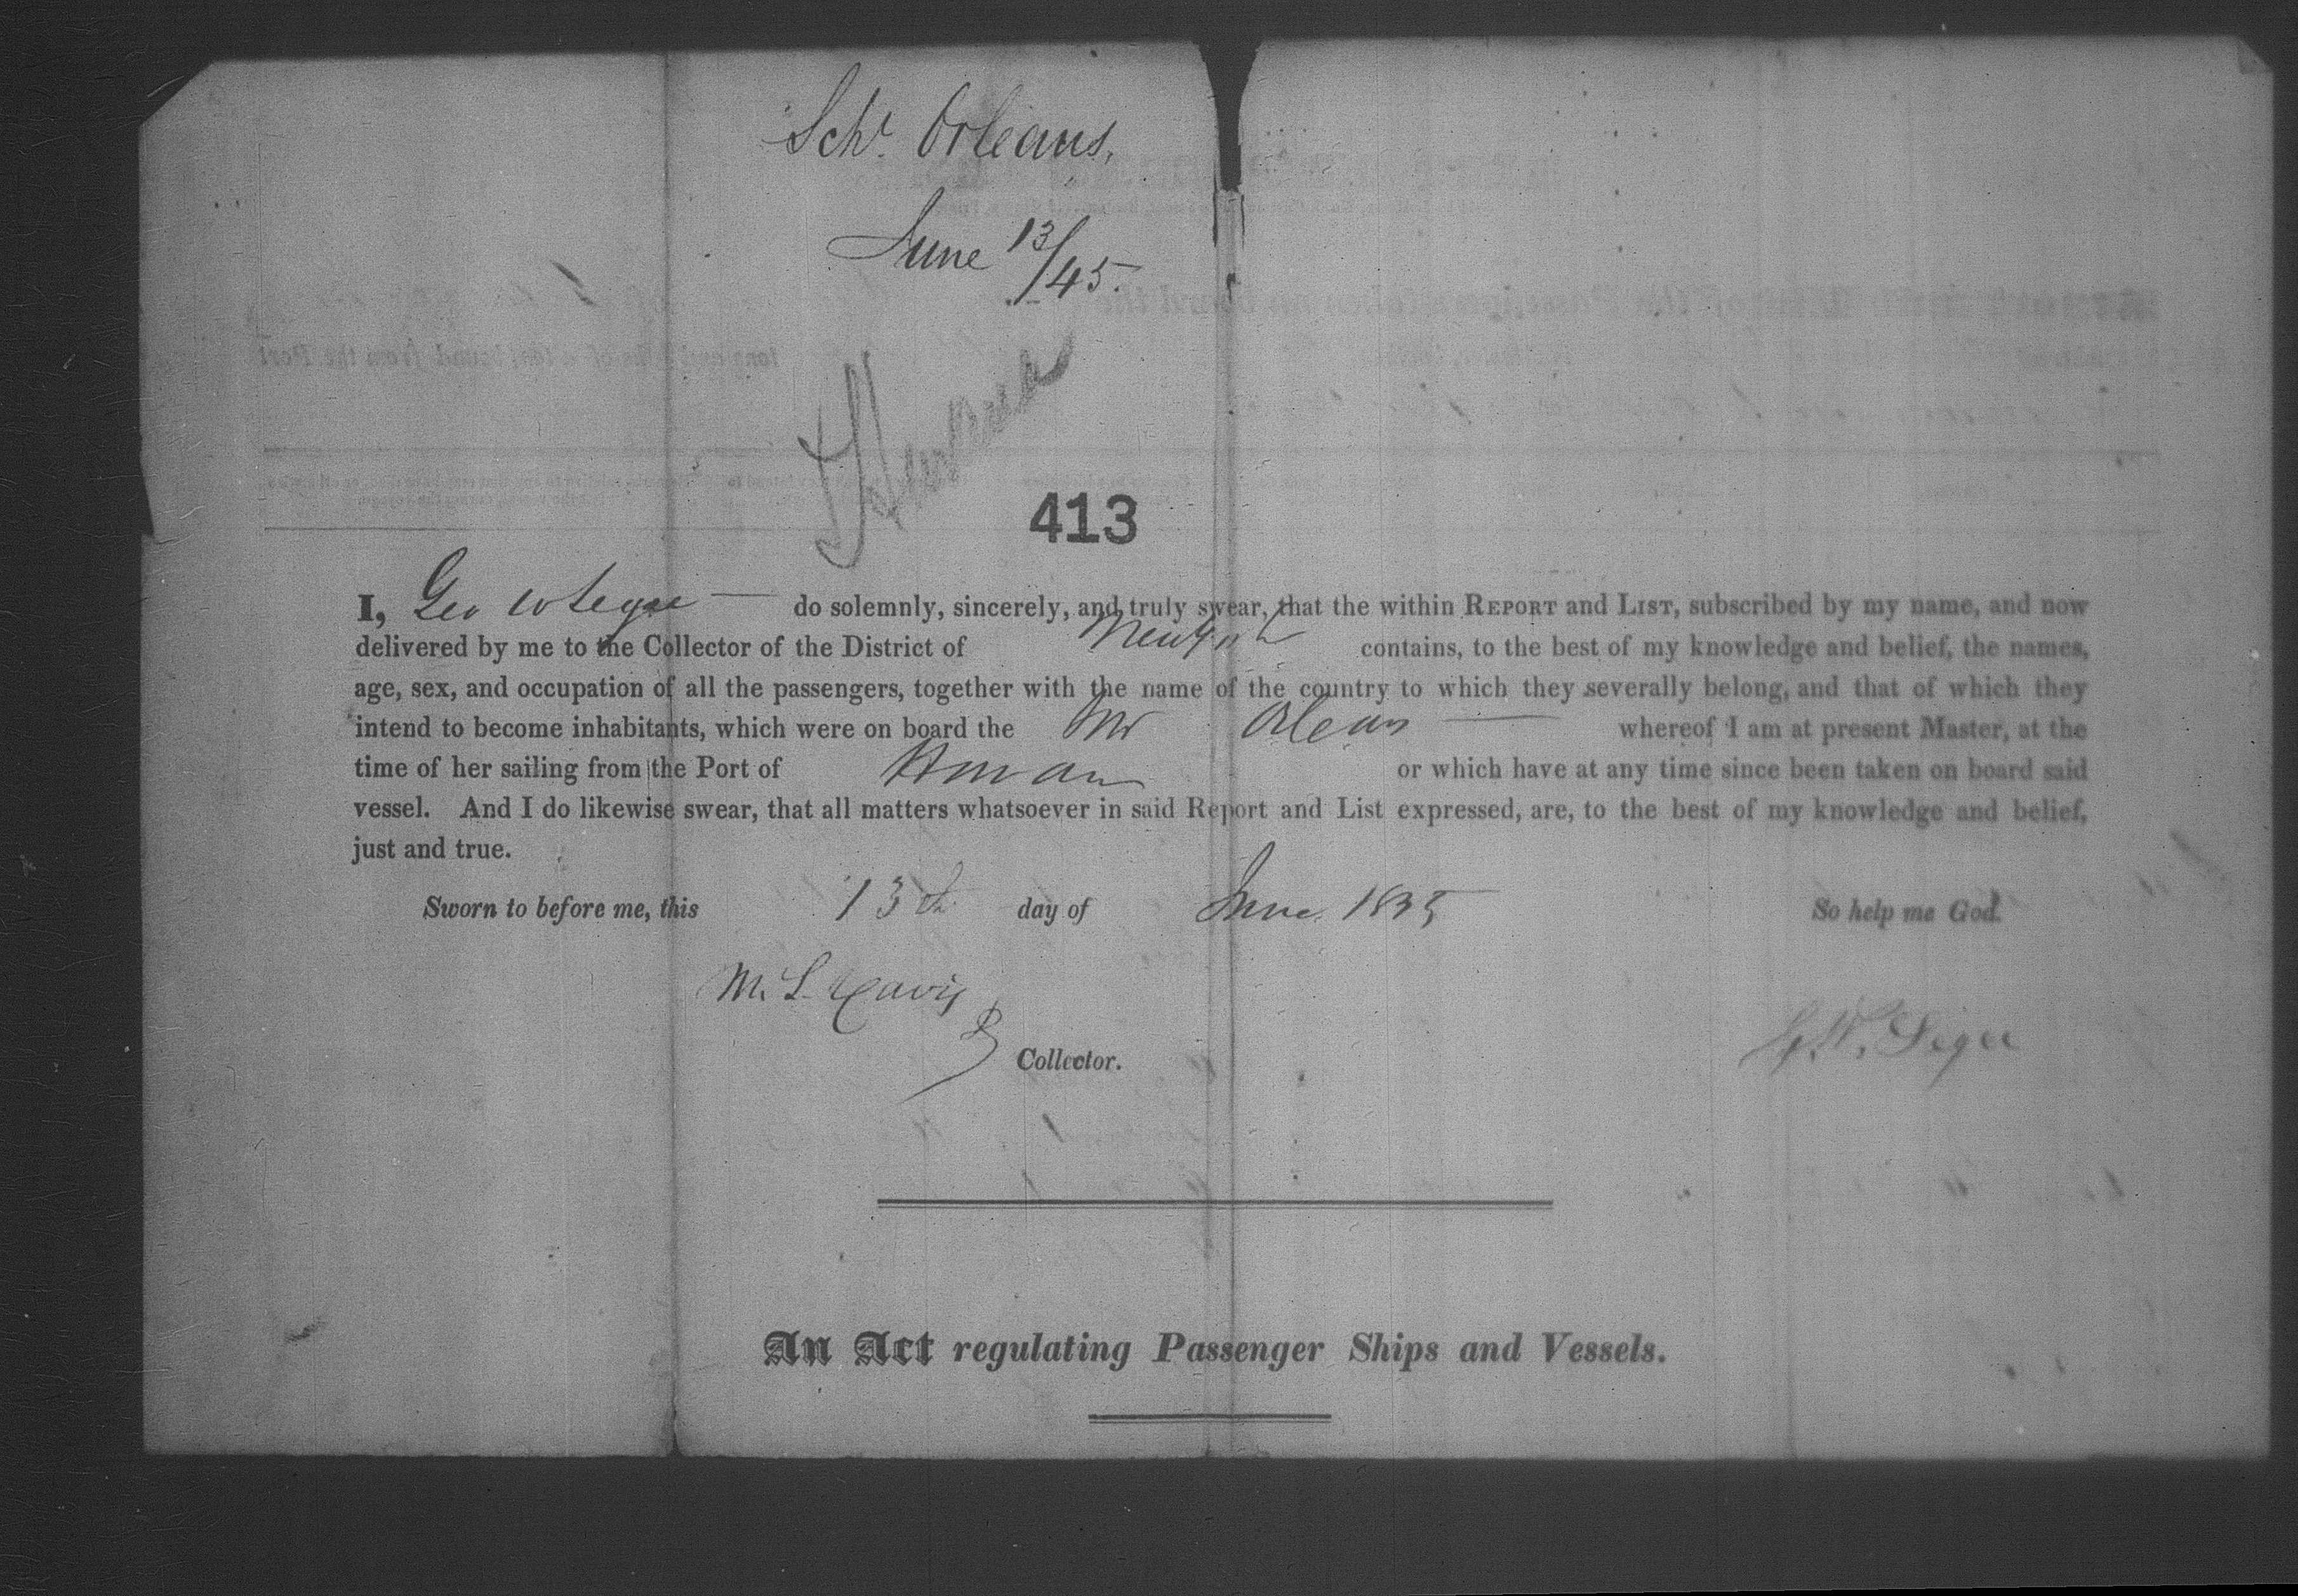 Schr. Orleans,
June 13/45.
413
I, Geo W Segee do solemnly, sincerely, and truly swear, that the within REPORT and LIST, subscribed by my name, and now
delivered by me to the Collector of the District of New York contains, to the best of my knowledge and belief, the names,
age, sex, and occupation of all the passengers, together with the name of the country to which they severally belong, and that of which they
intend to become inhabitants, which were on board the Orleans whereof I am at present Master, at the
time of her sailing from the Port of or which have at any time since been taken on board said
vessel. And I do likewise swear, that all matters whatsoever in said Report and List expressed, are, to the best of my knowledge and belief,
just and true.
Sworn to before me, this 13th day of June 1845 So help me God.
M. L. Davis
G. W. Segee
Collector.
An Act regulating Passenger Ships and Vessels.